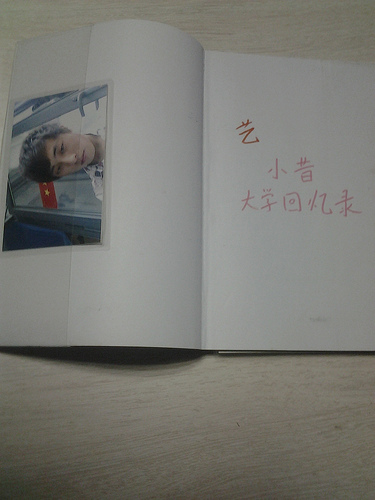 艺
小昔
大学回忆录